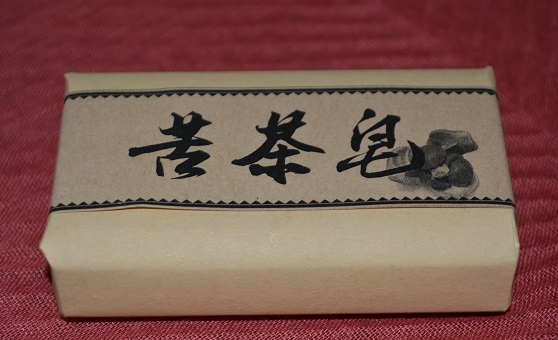 苦茶皂